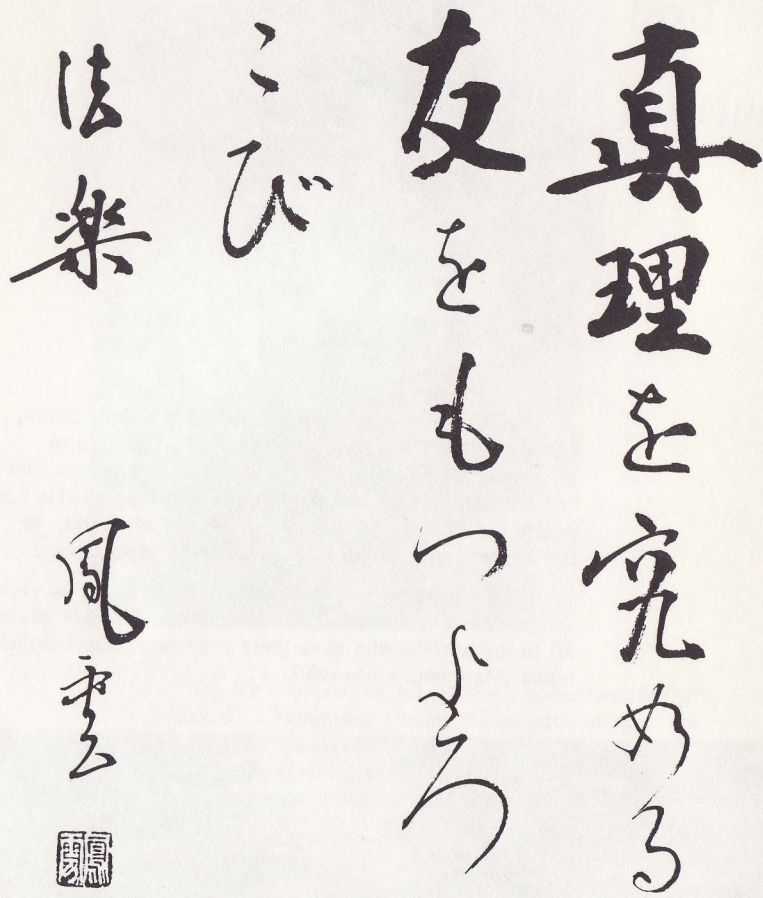 真理を究める
友をもつよろ
こび
法楽 鳳雲
鳳雲